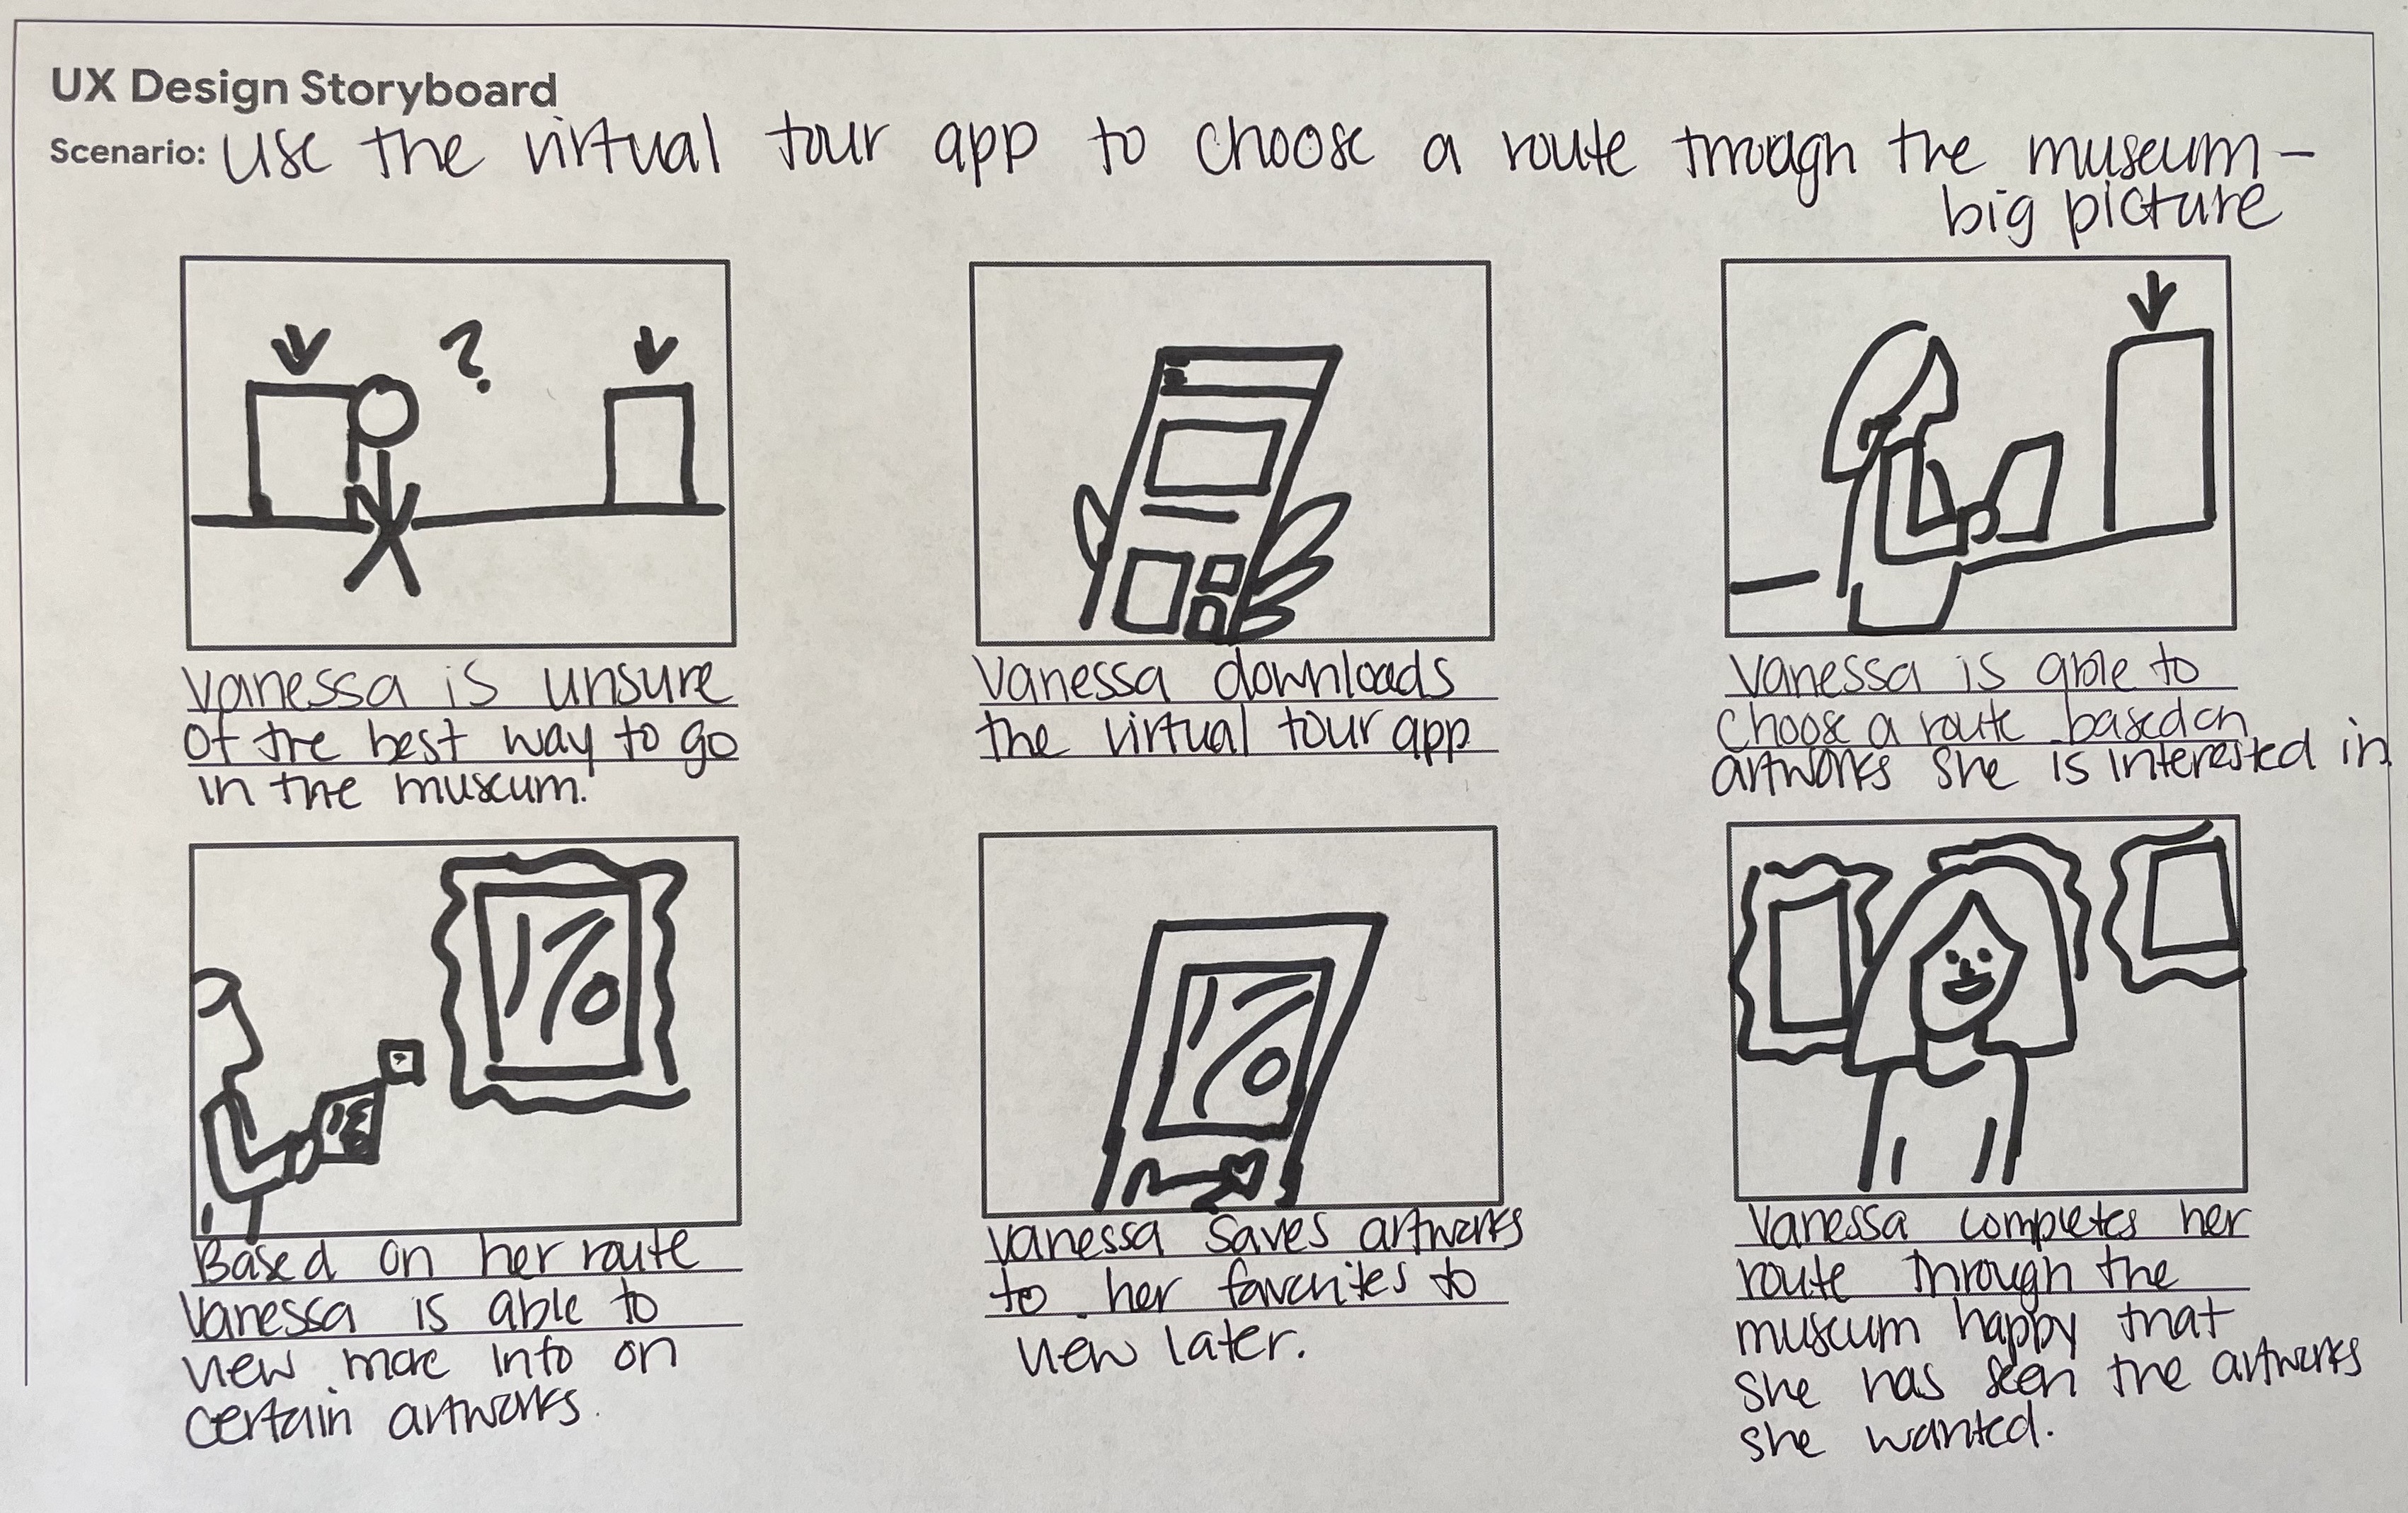 UX Design Storyboard
Scenario: Use the virtual tour app to choose a route through the museum -
big picture
?
Vanessa is unsure
of the best way to go
in the museum.
Vanessa downloads
the virtual tour app
Vanessa is able to
choose a route based on
artworks she is interested in
Based on her route
Vanessa is able to
view more info on
certain artworks.
Vanessa saves artworks
to her favorites to
view later.
Vanessa completes her
route through the
museum happy that
she has seen the artworks
she wanted.